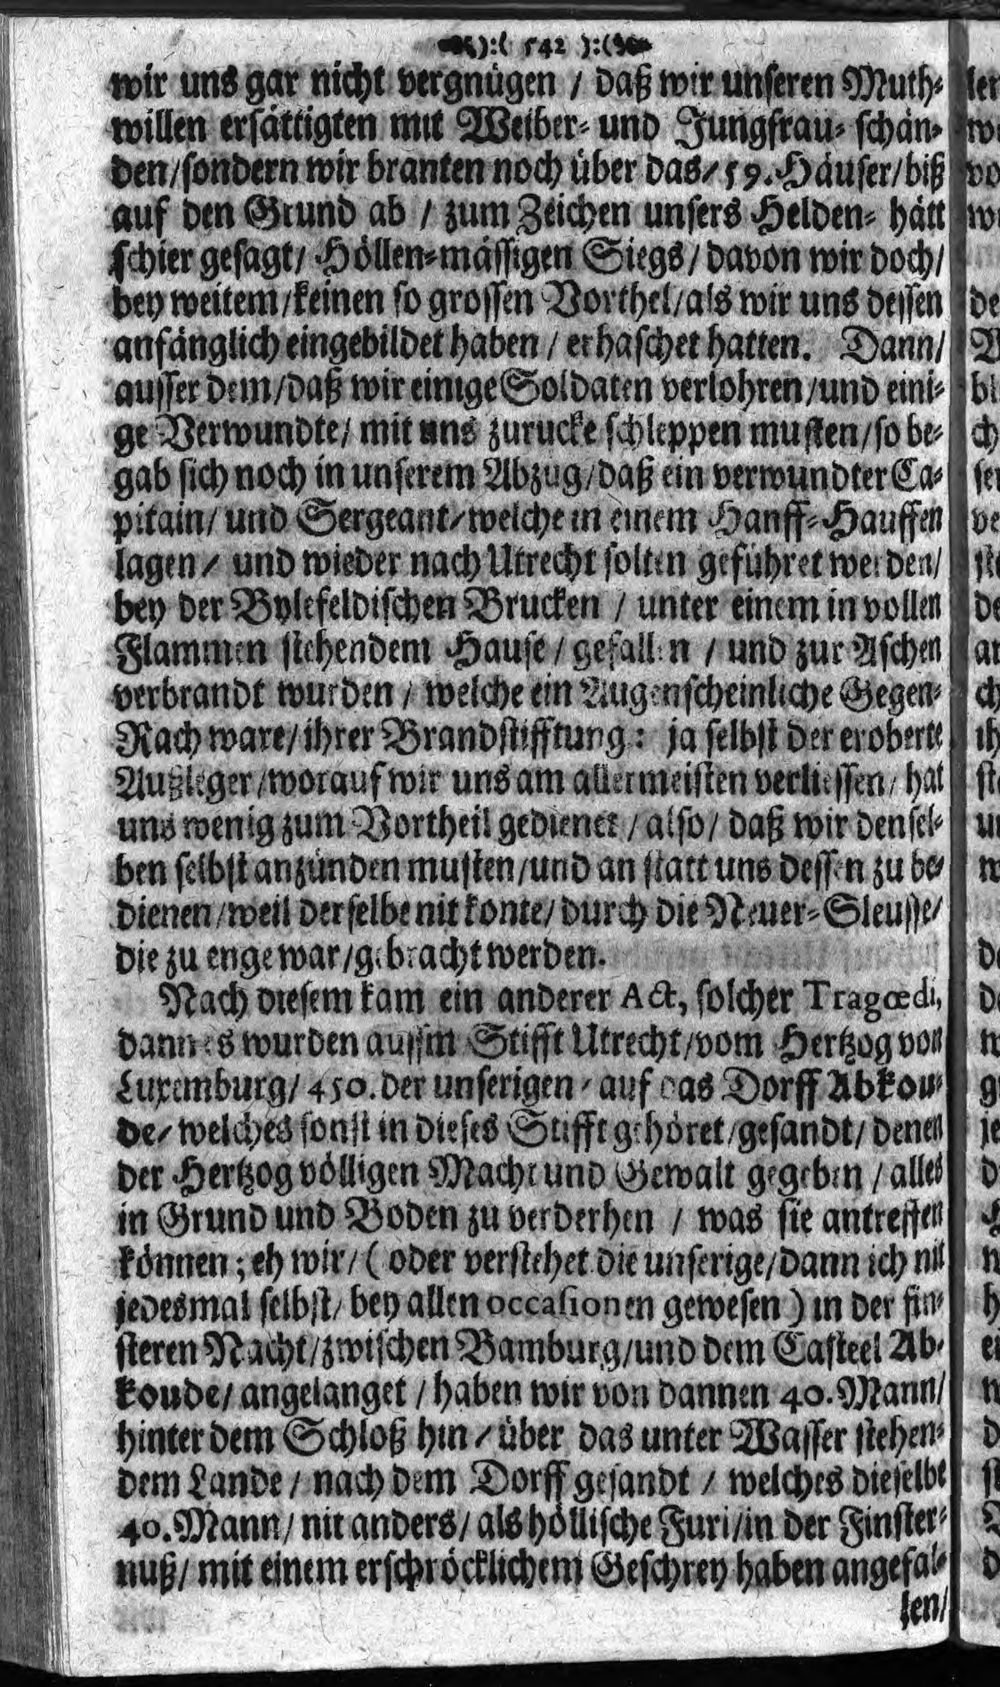 ):( 542 ):(
wir uns gar nicht vergnügen / daß wir unseren Muth-
willen ersättigten mit Weiber- und Jungfrau- schän-
den/sondern wir branten noch über das/ 59. Häuser/biß
auf den Grund ab / zum Zeichen unsers Helden- hätt
schier gesagt/ Höllen-mässigen Siegs/ davon wir doch/
bey weitem/keinen so grossen Vorthel/als wir uns dessen
anfänglich eingebildet haben / erhaschet hatten. Dann/
ausser dem/daß wir einige Soldaten verlohren/und eini-
ge Verwundte/ mit uns zurucke schleppen musten/so be-
gab sich noch in unserem Abzug/daß ein verwundter Ca-
pitain/ und Sergeant/welche in einem Hanff-Hauffen
lagen/ und wieder nach Utrecht solten geführet werden/
bey der Bylefeldischen Brucken / unter einem in vollen
Flammen stehendem Hause / gefallen / und zur Aschen
verbrandt wurden / welche ein Augenscheinliche Gegen-
Rach ware/ ihrer Brandstifftung: ja selbst der eroberte
Außleger/worauf wir uns am allermeisten verliessen/ hat
uns wenig zum Vortheil gedienet / also/ daß wir densel-
ben selbst anzünden musten/und an statt uns dessen zu be-
dienen/weil derselbe nit konte/ durch die Neuer-Sleusse/
die zu enge war/gebracht werden.
Nach diesem kam ein anderer Act, solcher Tragœdi,
dann es wurden aussm Stifft Utrecht/vom Hertzog von
Luxemburg/ 450. der unserigen / auf das Dorff Abkou-
de/ welches sonst in dieses Stifft gehöret/gesandt/ denen
der Hertzog völligen Macht und Gewalt gegeben / alles
in Grund und Boden zu verderhen / was sie antreffen
können; eh wir/ ( oder verstehet die unserige/dann ich nit
jedesmal selbst/ bey allen occasionen gewesen ) in der fin-
steren Nacht/zwischen Bamburg/und dem Casteel Ab-
koude/ angelanget / haben wir von dannen 40. Mann/
hinter dem Schloß hin/ über das unter Wasser stehen-
dem Lande / nach dem Dorff gesandt / welches dieselbe
40. Mann/ nit anders/ als höllische Furi/in der Finster-
nuß/ mit einem erschröcklichem Geschrey haben angefal-
len/